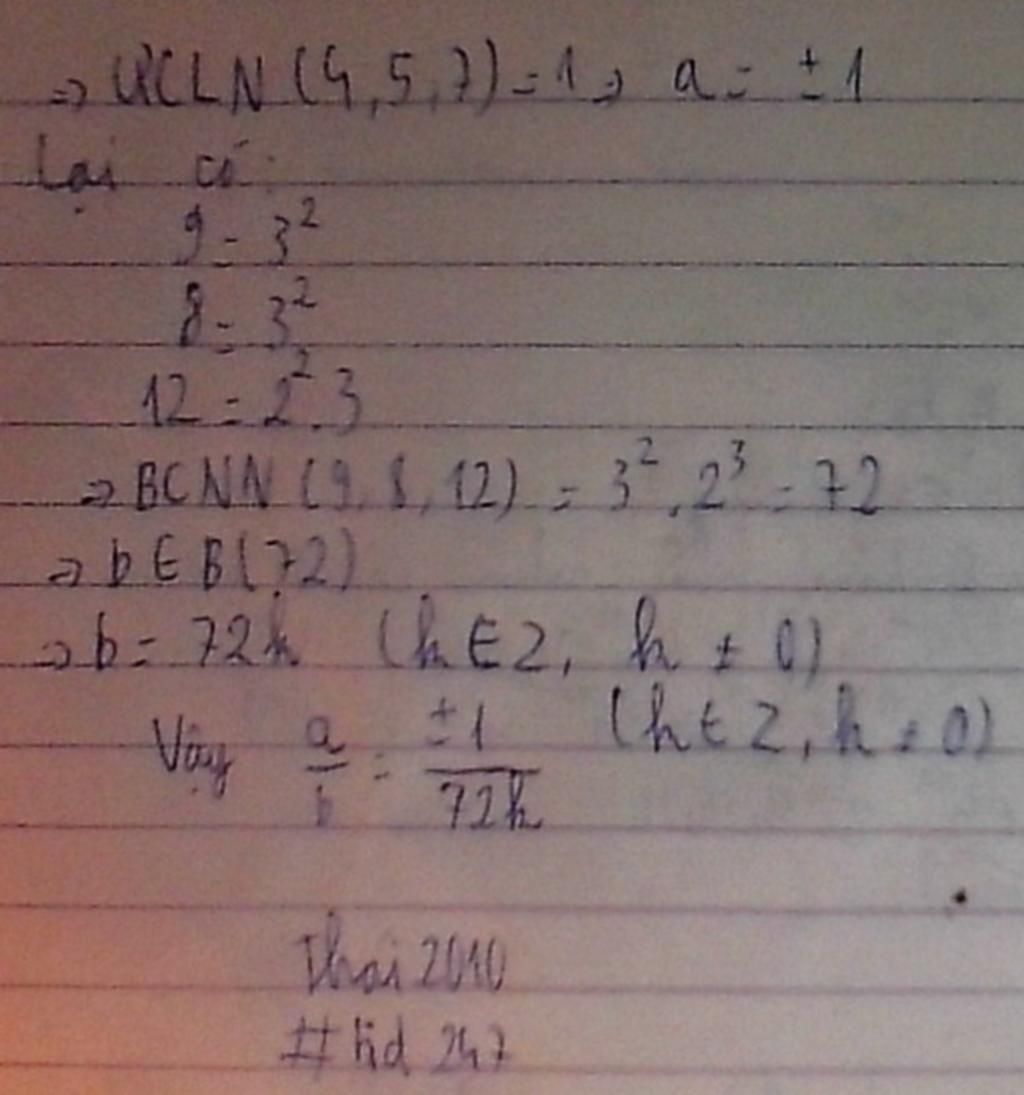 => ƯCLN (4, 5, 7) = 1 => a = ± 1
Lại có:
9 = 3²
8 = 3²
12 = 2² . 3
=> BCNN (9, 8, 12) = 3² . 2³ = 72
=> b ∈ B(72)
=> b = 72k (k ∈ Z, k ≠ 0)
Vậy a/b = ±1/72k (k ∈ Z, k ≠ 0)
Thai 2010
# tid 247